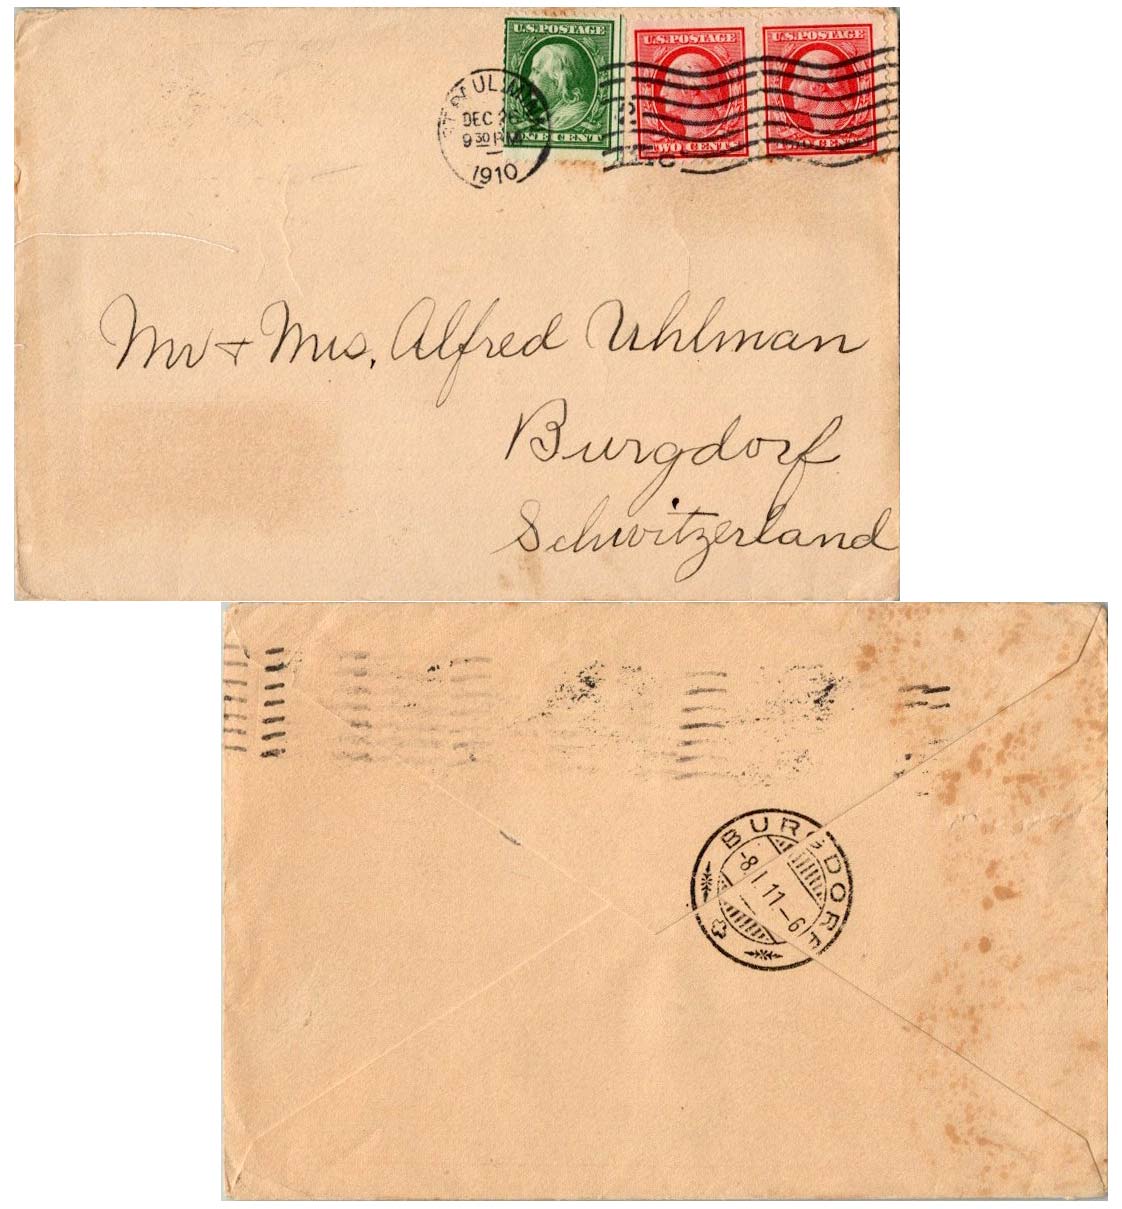 U.S.POSTAGE
ONE CENT
U.S.POSTAGE
TWO CENTS
U.S.POSTAGE
TWO CENTS
ST. PAUL, MINN.
DEC 26
9 30 PM
1910
Mr + Mrs. Alfred Uhlman
Burgdorf
Schwitzerland
BURGDORF
-8.I.11-6